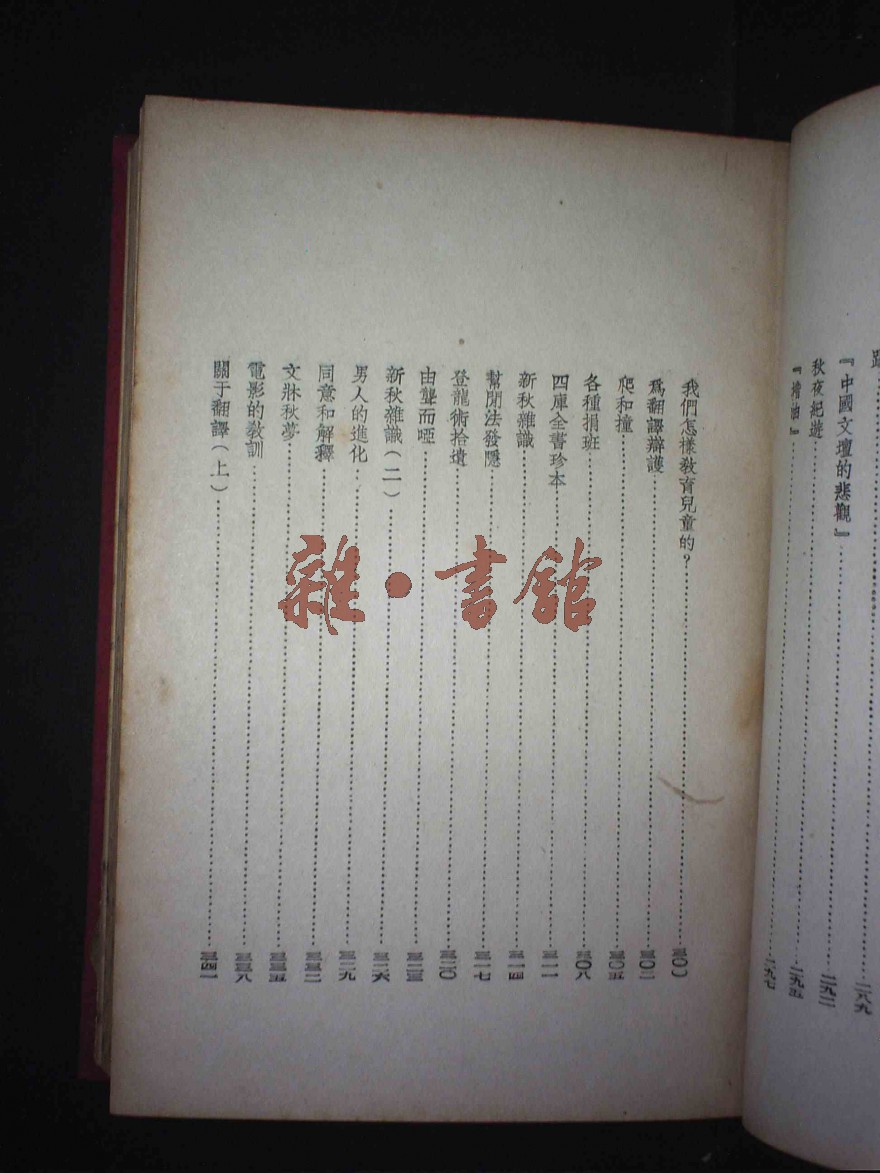 二八九
『中國文壇的悲觀』……二九二
秋夜紀遊……二九五
『揩油』……二九七
我們怎樣敎育兒童的？……
爲翻譯辯護……三〇二
爬和撞……三〇五
各種捐班……三〇八
四庫全書珍本……三一一
新秋雜識……三一四
幫閒法發隱……三一七
登龍術拾遺……三二〇
由聾而啞……三二三
新秋雜識（二）……三二六
男人的進化……三二九
同意和解釋……三三二
文牀秋夢……三三五
電影的敎訓……三三八
關于翻譯（上）……三四一
雜•書館